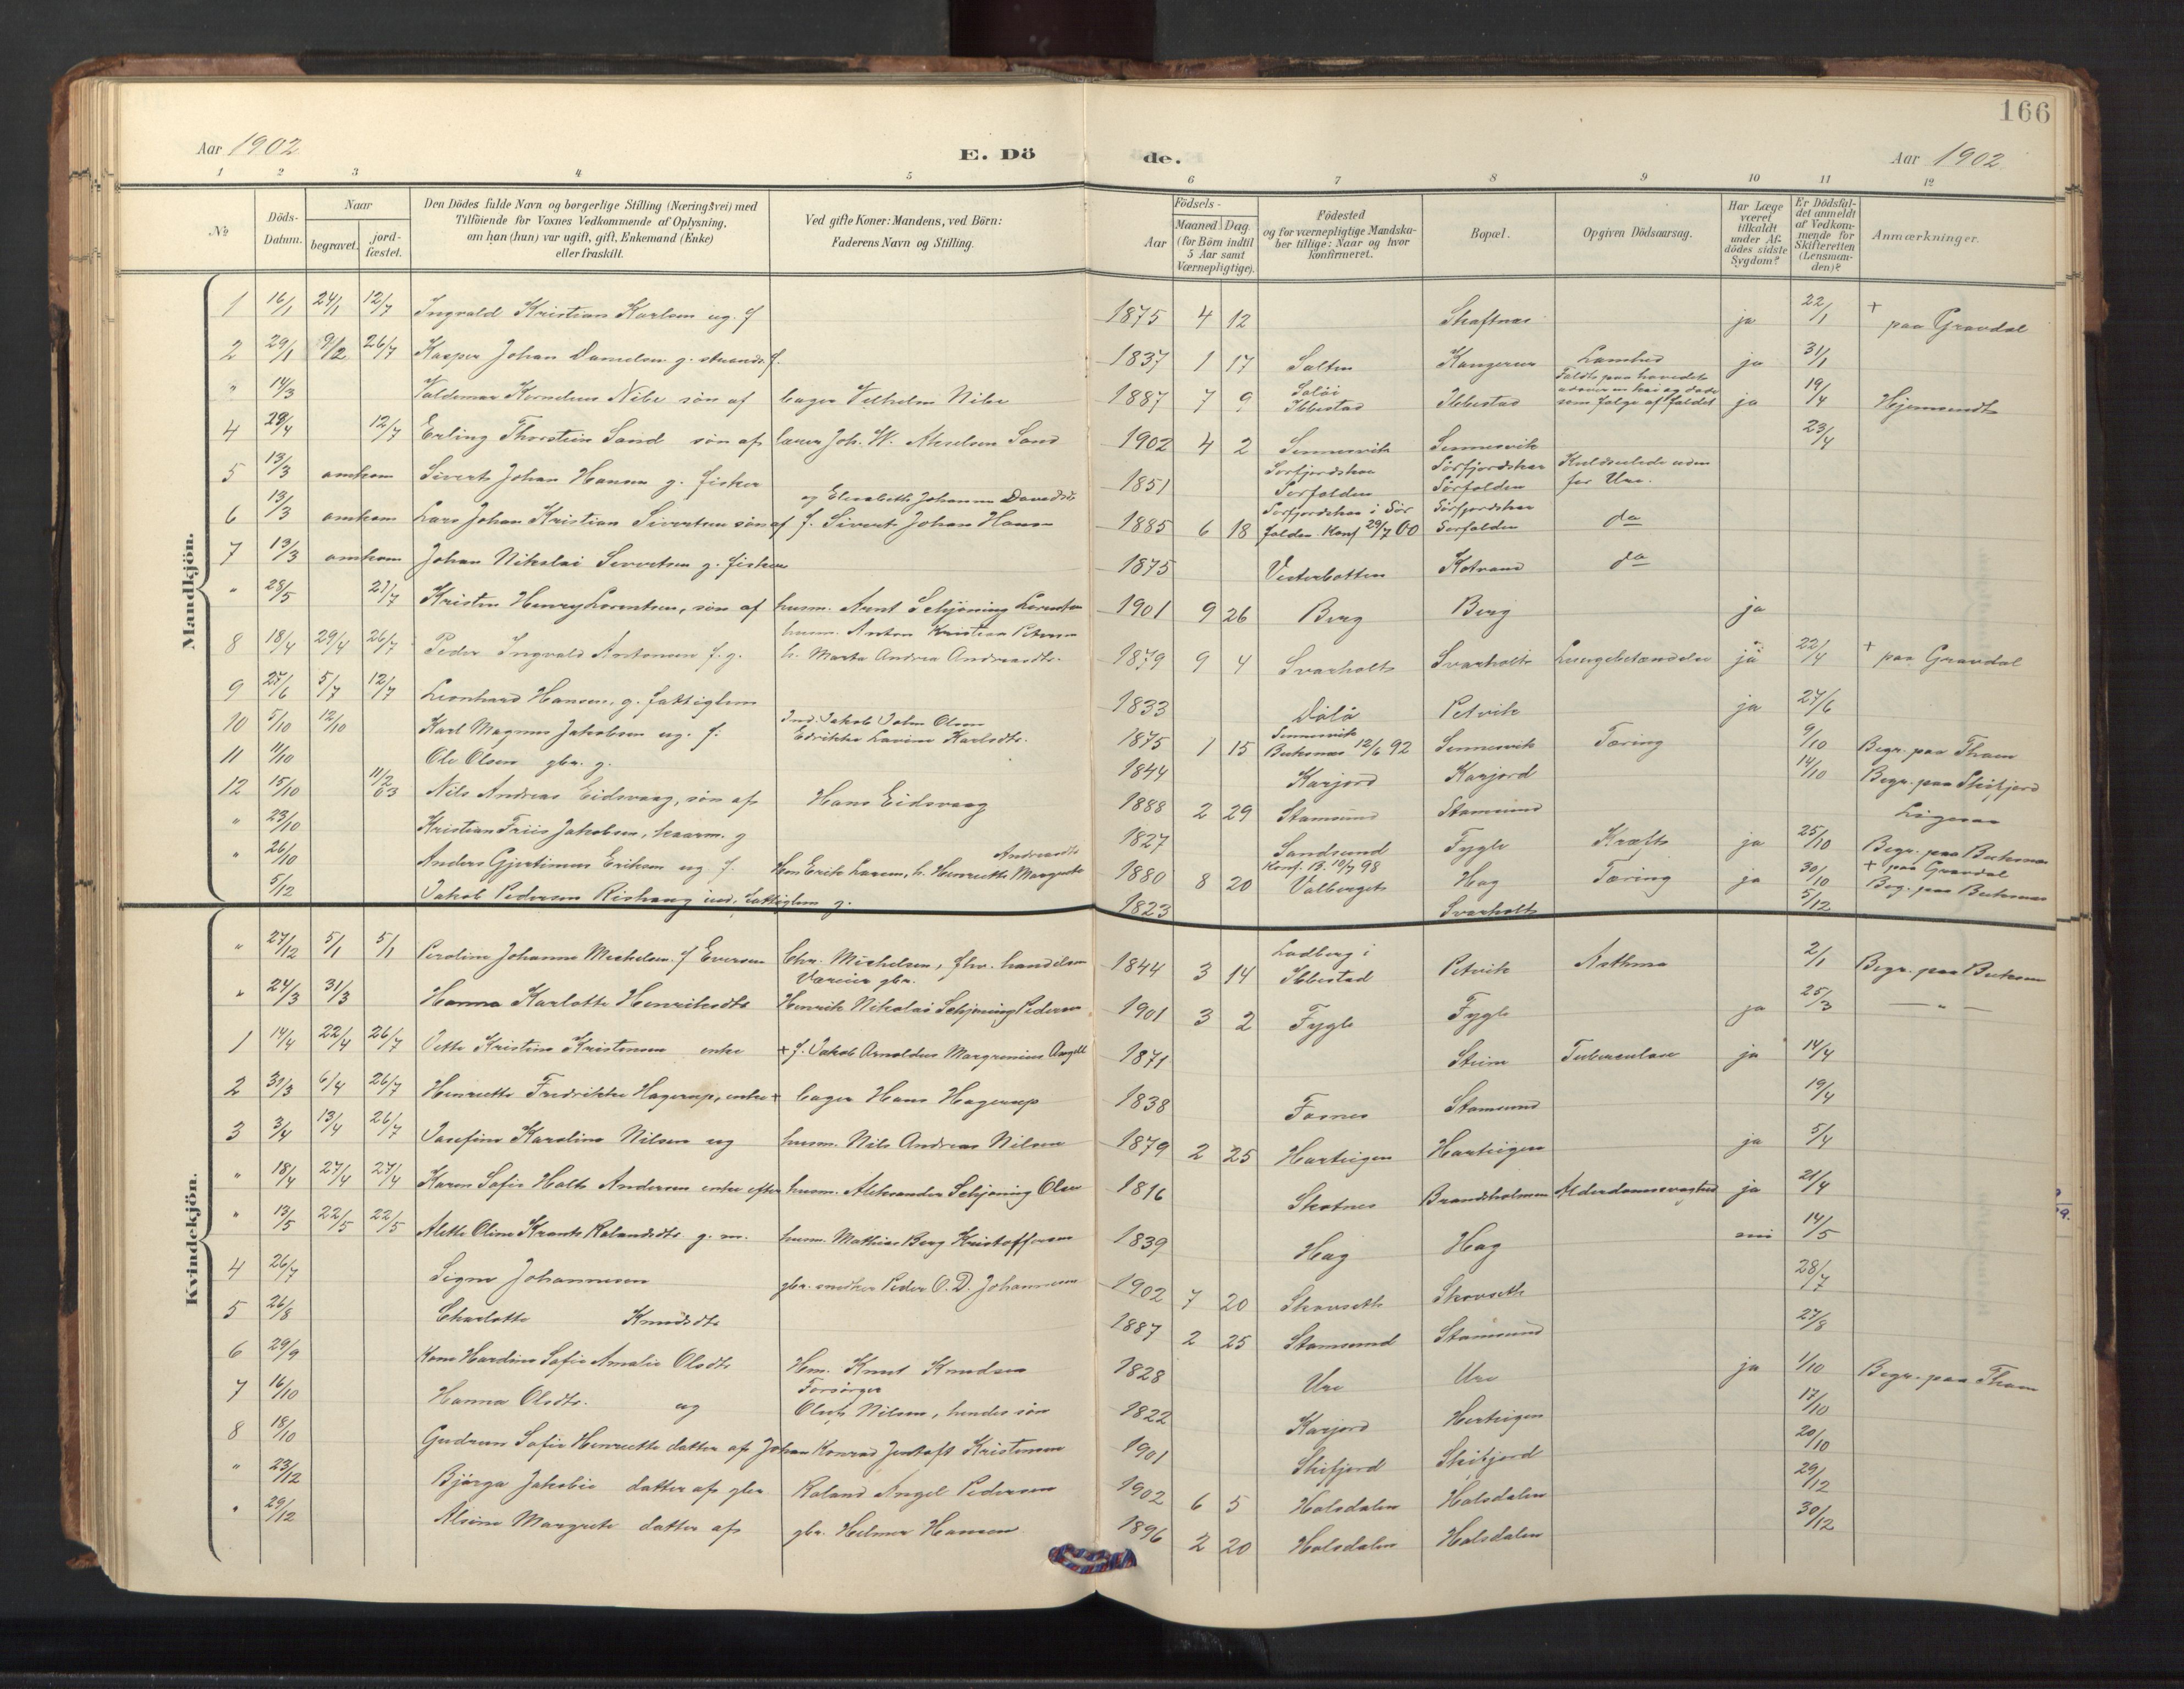 166
Aar 1902
E. Dö
de.
Aar 1902
1 2 3 4 5 6 7 8 9 10 11 12
No
Döds-Datum.
Naar
begravet.
jord-fæstet.
Den Dödes fulde Navn og borgerlige Stilling (Næringsvei) med
Tilföiende for Voxnes Vedkommende af Oplysning,
om han (hun) var ugift, gift, Enkemand (Enke)
eller fraskilt.
Ved gifte Koner: Mandens, ved Börn:
Faderens Navn og Stilling.
Födsels-
Aar
Maaned Dag
(for Börn indtil
5 Aar samt
Værnepligtige).
Födested
og for værnepligtige Mandska-
ber tillige: Naar og hvor
konfirmeret.
Bopæl.
Opgiven Dödsaarsag.
Har Læge
været
tilkaldt
under Af-
dödes sidste
Sygdom?
Er Dödsfal-
det anmeldt
af Vedkom-
mende for
Skifteretten
(Lensman-
den)?
Anmærkninger.
Mandkjön.
1 16/1 24/1 12/7 Ingvald Kristian Karlsen ug. f 1875 4 12 Skaftnes ja 22/1 + paa Gravdal
2 29/1 9/2 26/7 Kasper Johan Danielsen g. strands.f. 1837 1 17 Salten ja 31/1
" 14/3 Valdemar Kornelius Nibe sön af bager Vilhelm Nibe 1887 7 9 Ibbestad Ibbestad Faldt paa hovedet som følge af faldet ja 19/4 Hjemsendt
4 12/7 Erling Thorstein Sand sön af lærer Joh. W. Akselsen Sand 1902 4 2 Sennesvik Sennesvik 23/4
5 13/3 omkom Sivert Johan Hansen g. fisker 1851 Sörfolden Sörfolden Kuldseilede uden for Ure.
6 13/3 omkom Lars Johan Kristian Sivertsen sön af f. Sivert Johan Hans- og Elisabeth Johanna Davidsdt 1885 6 18 i Sör folden Konf 29/7 00 Sörfolden do
7 13/3 omkom Johan Nikolai Sivertsen g. fisker 1875 Vesterbotten Kotvand do
" 28/5 27/7 Kristen Henry Lorentsen, sön af husm. Arnt Schjöning Lorentsen 1901 9 26 Berg Berg ja
8 18/4 29/4 26/7 Peder Ingvald Antonsen f. g. husm. Anton Kristian Petersen h. Marta Andrea Andreasdtr. 1879 9 4 Svarholt Svarholt Lungebetændelse ja 22/4 + paa Gravdal
9 27/6 5/7 12/7 Leonhard Hansen, g. fattiglem 1833 Petvik ja 27/6
10 5/10 12/10 Karl Magnus Jakobsen ug. f. Ind. Jakob John Olsen Lavine Karlsdtr. 1875 1 15 Sennesvik Buksnes 12/6 92 Sennesvik Tæring 9/10 Begr. paa Tham
11 11/10 Ole Olsen gbr. g. 1844 Karjord Karjord 14/10 Begr. paa Skifjord
12 15/10 11/2 03 Nils Andreas Eidsvaag, sön af Hans Eidsvaag 1888 2 29 Stamsund Stamsund
" 23/10 Kristian Friis Jakobsen, kaarm. g 1827 Sandsund Fygle Kræft ja 25/10 Begr. paa Buksnes
" 26/10 Anders Gjertinus Eriksen ug f. Hm Erik Larsen, h. Henriette Margrete Andreasdt 1880 8 20 Konf. B. 10/7 98 Valberget Hag Tæring ja 30/10 + paa Gravdal Beg. paa Buksnes
5/12 Jakob Pedersen Rishaug ind. fattiglem g. 1823 Svarholt 5/12
Kvindekjön.
" 27/12 5/1 5/1 Perolina Johanna Mechelsen f Eversen Chr. Michelsen, fhv. handelsm 1844 3 14 i Ibbestad Petvik Asthma 2/1 Begr. paa Buksnes
" 24/3 31/3 Hanna Karlotte Henriksdtr gbr. Henrik Nikolai Schjöning Pedersen 1901 3 2 Fygle Fygle ja 25/3 — " —
1 14/4 22/4 26/7 Kristine Kristensen enke + f. Jakob Arnoldus Margrenius Angell 1871 Steine Tuberculose ja 14/4
2 31/3 6/4 26/7 Henriette Fredrikke Hagerup, enke + bager Hans Hagerup 1838 Fosnes Stamsund 19/4
3 3/4 13/4 26/7 Josefine Karoline Nilsen ug husm. Nils Andreas Nilsen 1879 2 25 Hartvigen Hartvigen ja 5/4
" 18/4 27/4 27/4 Karen Sofie Holt Andersen enke efter husm. Aleksander Schjöning Olsen 1816 Skotnes Brandsholmen Alderdomssvaghed ja 21/4
" 13/5 22/5 22/5 Alette Oline Krants Rolandsdtr g. m. husm. Mathias Berg Kristoffersen 1839 Hag Hag nei 14/5
4 26/7 Signe Johannesen gbr. snedker Peder O. D. Johannesen 1902 7 20 Skovseth Skovseth 28/7
5 26/8 Charlotte Knudsdtr 1887 2 25 Stamsund Stamsund 27/8
6 29/9 Kone Hardine Sofie Amalie Olsdtr Hm. Knut Knudsen 1828 Ure Ure ja 1/10 Begr. paa Tham
7 16/10 Hanna Olsdtr. ug Forsörger Nilsen, hendes sön 1822 Karjord Hertvigen 17/10
8 18/10 Gudrun Sofie Henriette datter af Johan Konrad Jentoft Kristensen 1901 Skifjord Skifjord 20/10
" 23/12 Björga Jakobie datter af gbr Roland Angel Pedersen 1902 6 5 Holsdalen Holsdalen 29/12
" 29/12 Alvine Margrete datter af gbr. Helmer Hansen 1896 2 20 Holsdalen Holsdalen 30/12